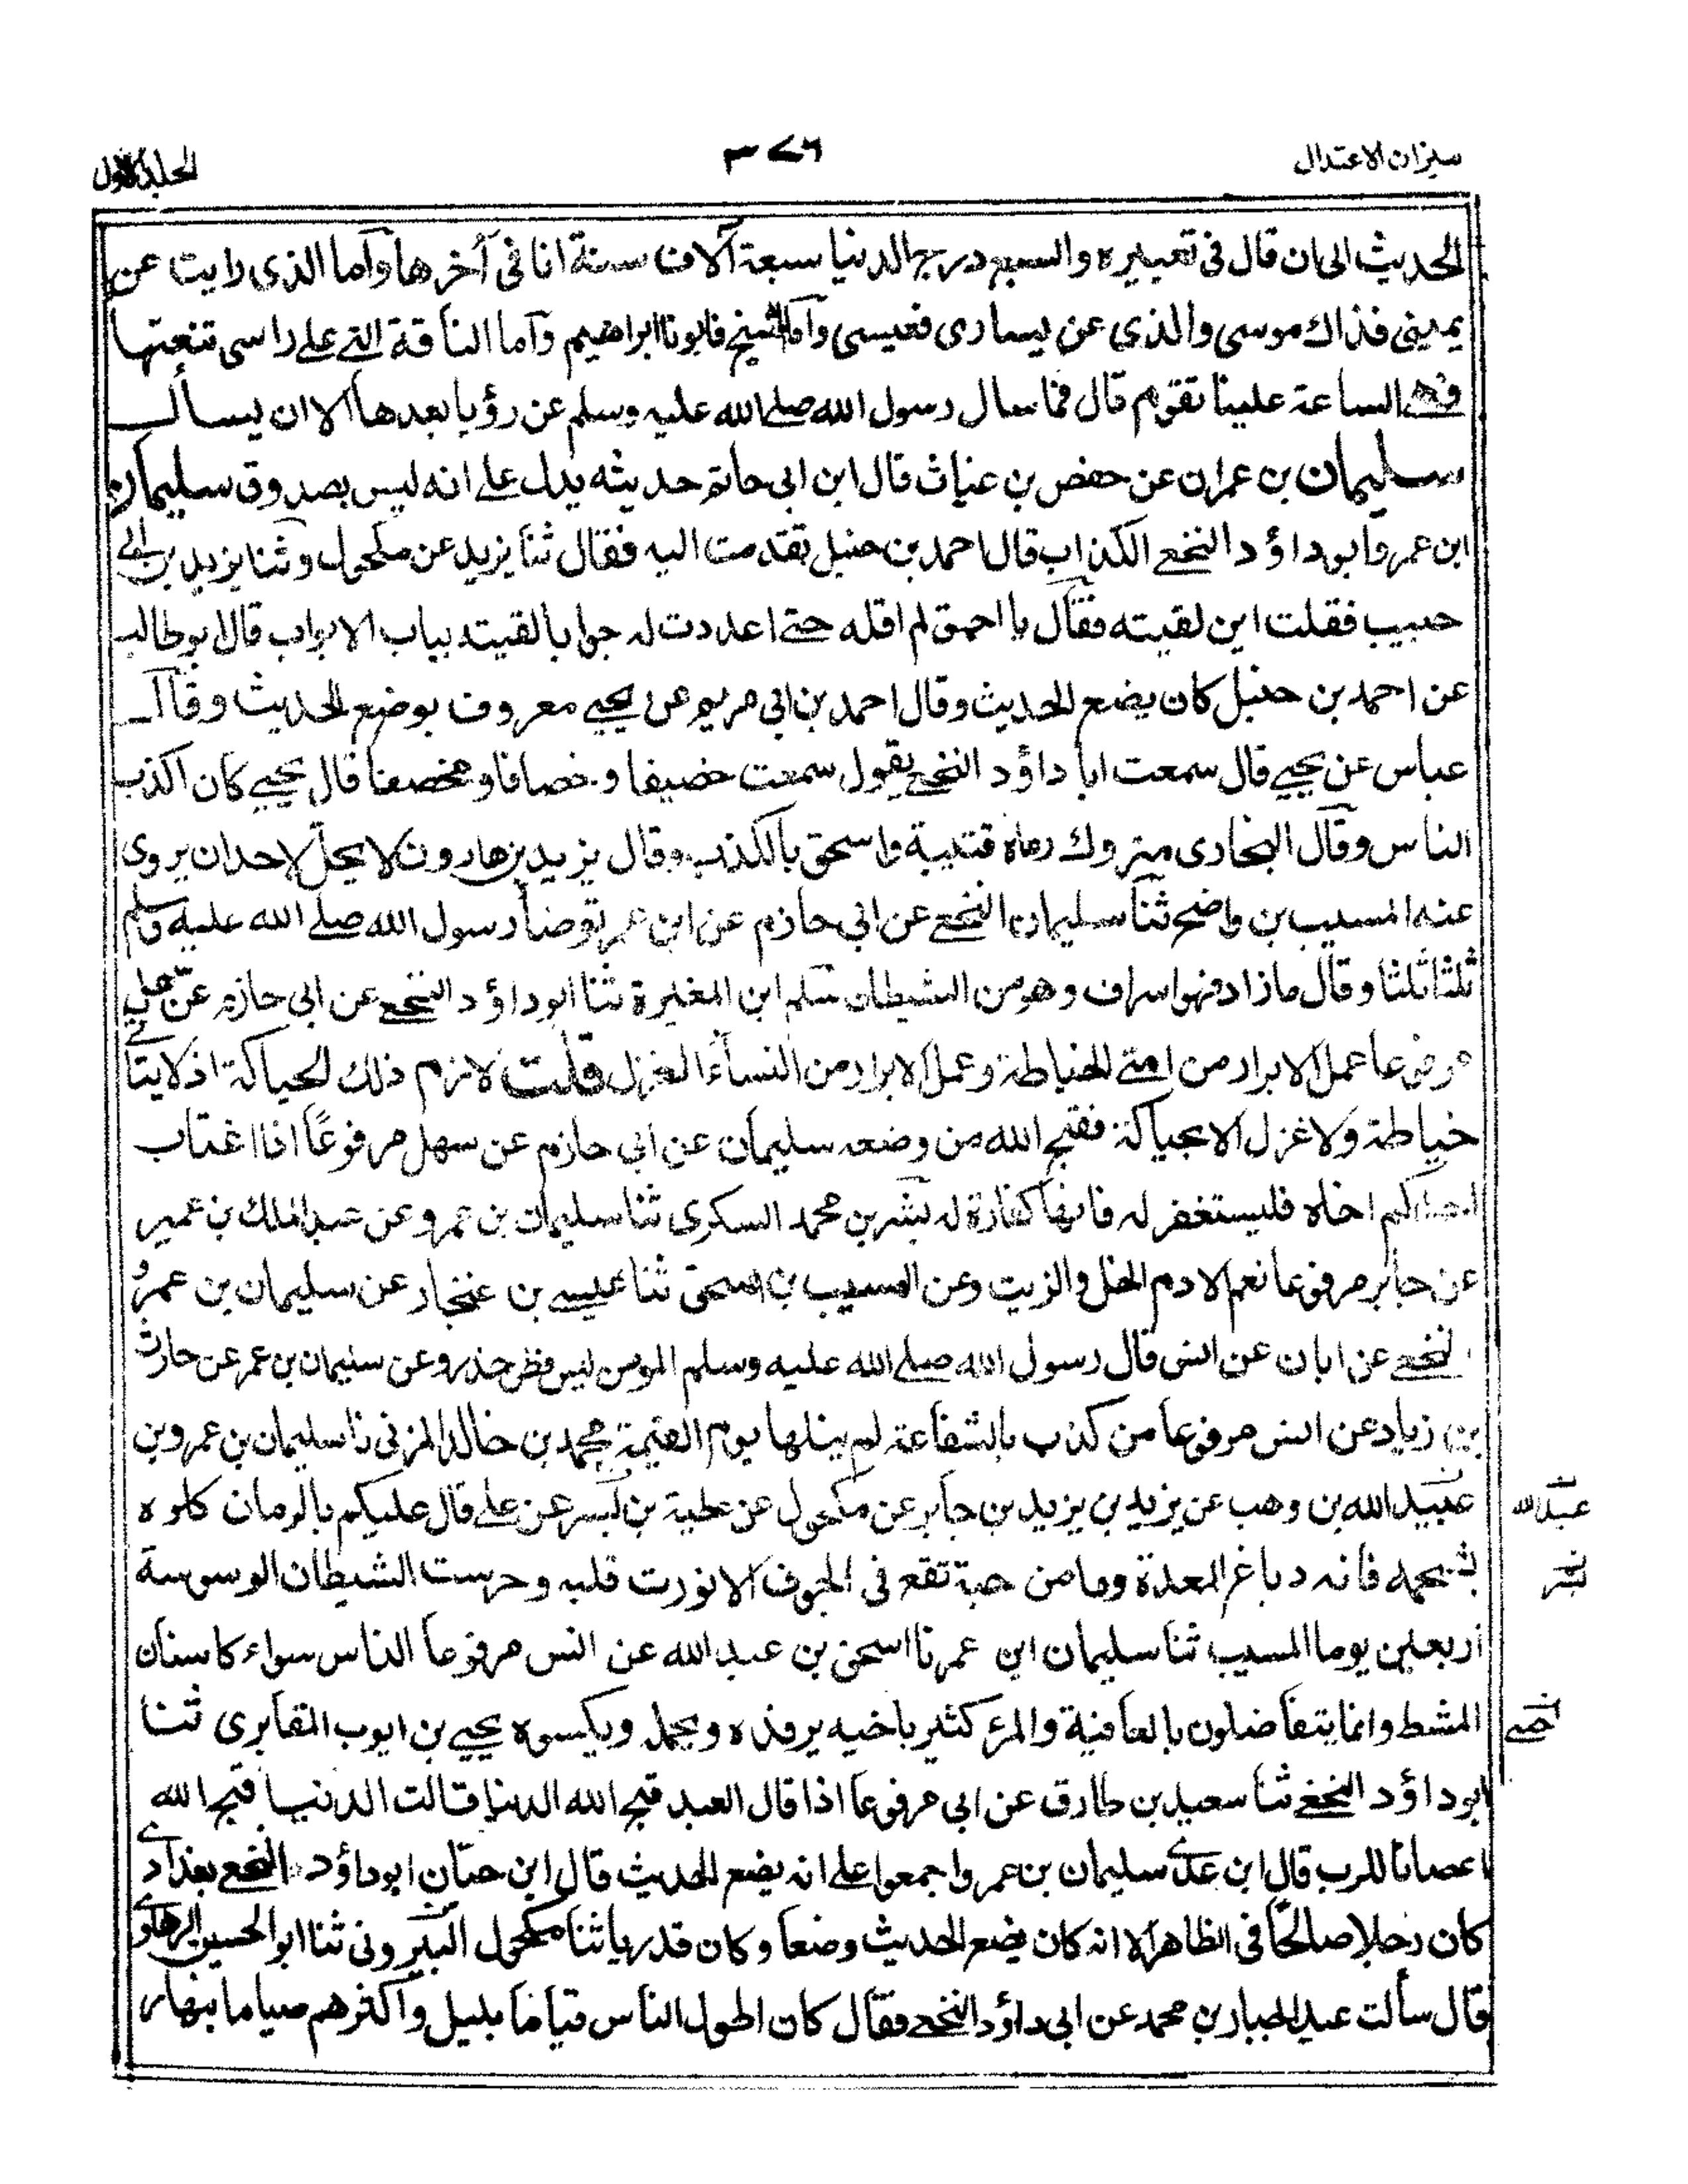 ميزان الاعتدال
٣٧٦
الجلد الاول
الحديث الى ان قال فى تعبيره والسبع درج الدنيا سبعة آلاف سنة انا فى آخرها وآما الذى رايت عن
يمينى فذاك موسى والذى عن يسارى فعيسى وآما الشيخ فابونا ابراهيم وآما الناقة التے علے راسى تنعتها
فهے الساعة علينا تقوم قال فما سال رسول الله صلے الله عليه وسلم عن رؤيا بعدها الا ان يسأل
سليمان بن عمران عن حفص بن غياث قال ابن ابى حاتم حديثه يدل علے انه ليس بصدوق سليمان
ابن عمرو ابو داؤد النخعے الكذاب قال احمد بن حنبل تقدمت اليه فقال ثنا يزيد عن مكحول وثنا يزيد بن ابے
حبيب فقلت اين لقيته فقال يا احمق لم اقله حتے اعددت له جوابا لقيته بباب الابواب قال ابو طالب
عن احمد بن حنبل كان يضع الحديث وقال احمد بن ابى مريم عن يحيے معروف بوضع الحديث وقال
عباس عن يحيے قال سمعت ابا داؤد النخعے يقول سمعت خصيفا وخصافا ومخصفا قال يحيے كان اكذب
الناس وقال البخارى متروك رماه قتيبة واسحق بالكذب وقال يزيد بن هارون لا يحل لاحد ان يروى
عنه المسيب بن واضح ثنا سليمان النخعے عن ابى حازم عن ابن عمر توضأ رسول الله صلے الله عليه وسلم
ثلثا ثلثا وقال ما زاد فهو اسراف وهو من الشيطان سلم ابن المغيرة ثنا ابو داؤد النخعے عن ابى حازم عن سهل
مرفوعا عمل الابرار من امتے الخياطة وعمل الابرار من النسآء الغزل قلت لازم ذلك الحياكة اذ لا يتاتے
خياطة ولا غزل الا بحياكة فقبح الله من وضعه سليمان عن ابى حازم عن سهل مرفوعًا اذا اغتاب
احدكم اخاه فليستغفر له فانها كفارة له بشر بن محمد السكرى ثنا سليمان بن عمرو عن عبد الملك بن عمير
عن جابر مرفوعا نعم الادم الخل والزيت وعن المسيب بن اسحق ثنا عيسے بن غنجار عن سليمان بن عمرو
النخعے عن ابان عن انس قال رسول الله صلے الله عليه وسلم المومن ليس فطن حذر وعن سليمان بن عمر عن حارث
بن زياد عن انس مرفوعا من كذب بالشفاعة لم ينلها يوم القيمة محمد بن خالد المزنى نا سليمان بن عمرو بن
عبيد الله بن وهب عن يزيد بن يزيد بن جابر عن مكحول عن عطية بن بسر عن علے قال عليكم بالرمان كلوه
بشحمه فانه دباغ المعدة وما من حبة تقع فى الجوف الا نورت قلبه وحرست الشيطان الوسوسة
اربعين يوما المسيب ثنا سليمان ابن عمر نا اسحق بن عبد الله عن انس مرفوعا الناس سواء كاسنان
المشط وانما يتفاضلون بالعافية والمرء كثير باخيه يرفده ويحمل ويكسوه يحيے بن ايوب المقابرى ثنا
ابو داؤد النخعے ثنا سعيد بن طارق عن ابى مرفوعا اذا قال العبد قبح الله الدنيا قالت الدنيا قبح الله
اعصانا للرب قال ابن عدے سليمان بن عمرو اجمعوا علے انه يضع الحديث قال ابن حبان ابو داؤد النخعے بغدادے
كان رجلا صالحًا فى الظاهر الا انه كان يضع الحديث وضعا وكان قدريا ثنا مكحول البيرونى ثنا ابو الحسين الرهاوے
قال سألت عبد الجبار بن محمد عن ابى داؤد النخعے فقال كان اطول الناس قياما بليل واكثرهم صياما بنهار
عبد الله
بشر